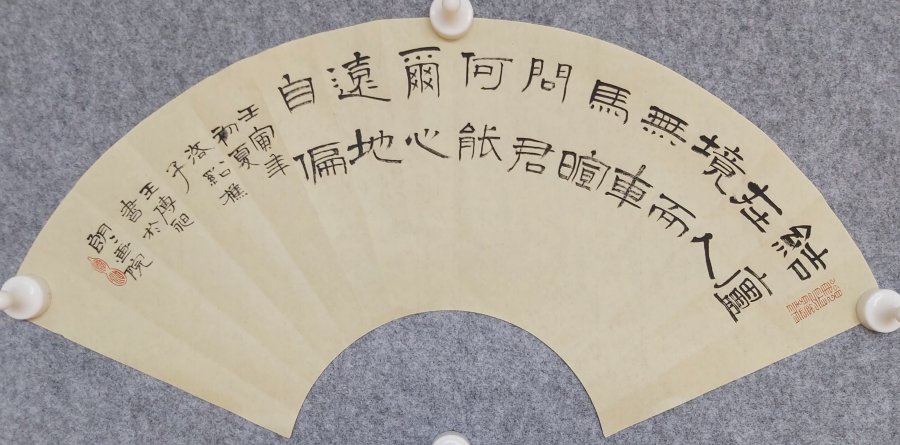 結廬
在人
境而
無車
馬暄
問君
何能
爾心
遠地
自偏
壬寅年
初夏
洛樵
子
王博
書於
朗院